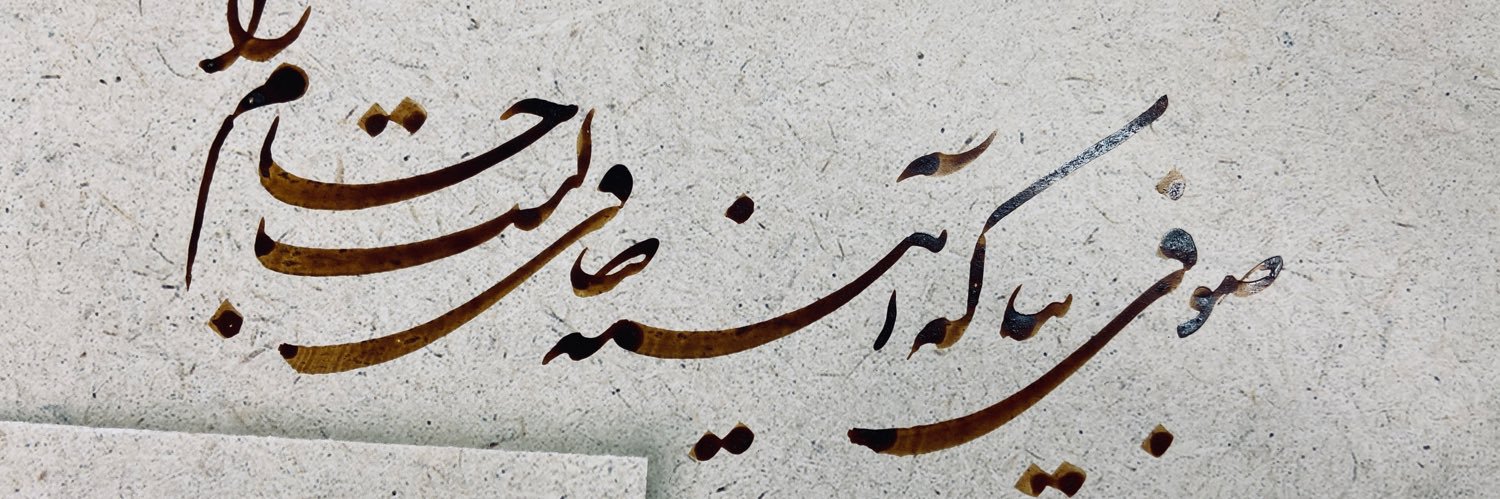 صوفی بیا که آینه صافیست جام را